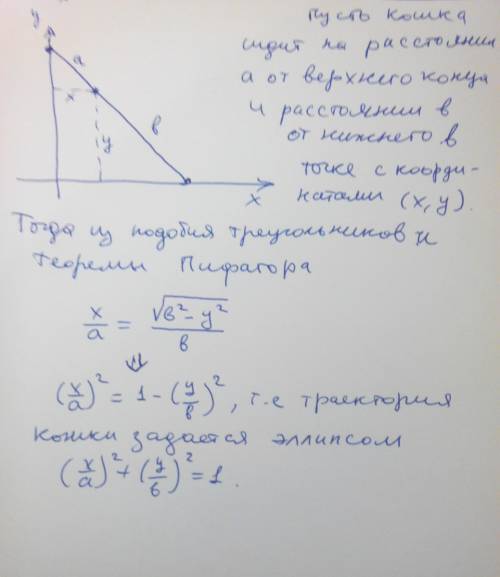 y
a
x
в
y
x
Пусть кошка
сидит на расстоянии
а от верхнего конца
и расстоянии в
от нижнего в
точке с коорди-
натами (x, y).
Тогда из подобия треугольников и
теоремы Пифагора
x/a = √(в² - y²)/в
⇓
(x/a)² = 1 - (y/в)², т.е траектория
кошки задается эллипсом
(x/a)² + (y/в)² = 1.